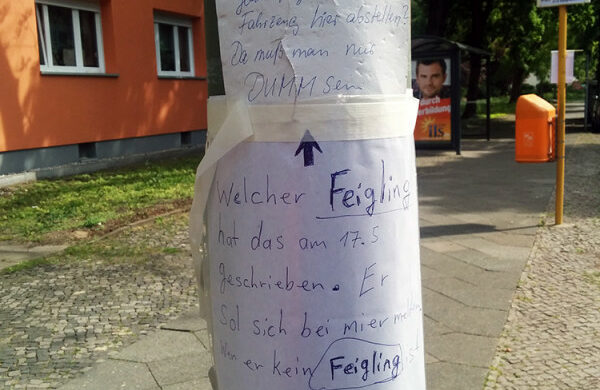 Fahrzeug hier abstellen?
Da muß man nur
DUMM sein
Welcher Feigling
hat das am 17.5
geschrieben. Er
Sol sich bei mier melden
Wen er kein Feigling ist
durch
erbildung
ils